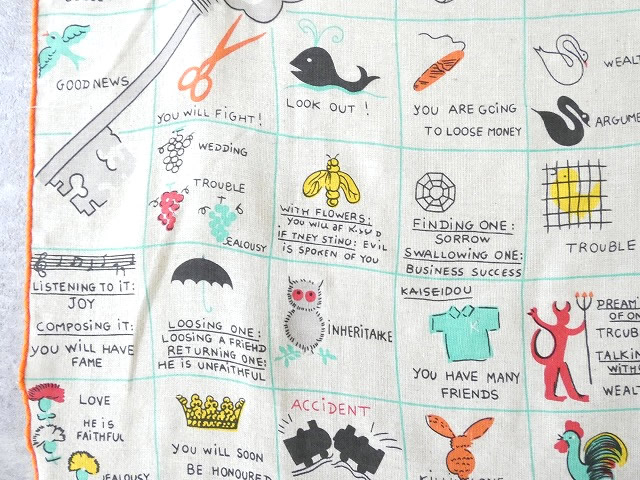 GOOD NEWS
YOU WILL FIGHT!
LOOK OUT !
YOU ARE GOING
TO LOOSE MONEY
WEALT
ARGUME
WEDDING
TROUBLE
JEALOUSY
WITH FLOWERS:
YOU WILL BE
IF THEY STING: EVIL
IS SPOKEN OF YOU
FINDING ONE:
SORROW
SWALLOWING ONE:
BUSINESS SUCCESS
TROUBLE
LISTENING TO IT:
JOY
COMPOSING IT:
YOU WILL HAVE
FAME
LOOSING ONE:
LOOSING A FRIEND
RETURNING ONE:
HE IS UNFAITHFUL
INHERITANCE
KAISEIDOU
K
YOU HAVE MANY
FRIENDS
DREAM
OF ON
TROUB
TALKIN
WITH
WEAL
LOVE
HE IS
FAITHFUL
JEALOUSY
YOU WILL SOON
BE HONOURED
ACCIDENT